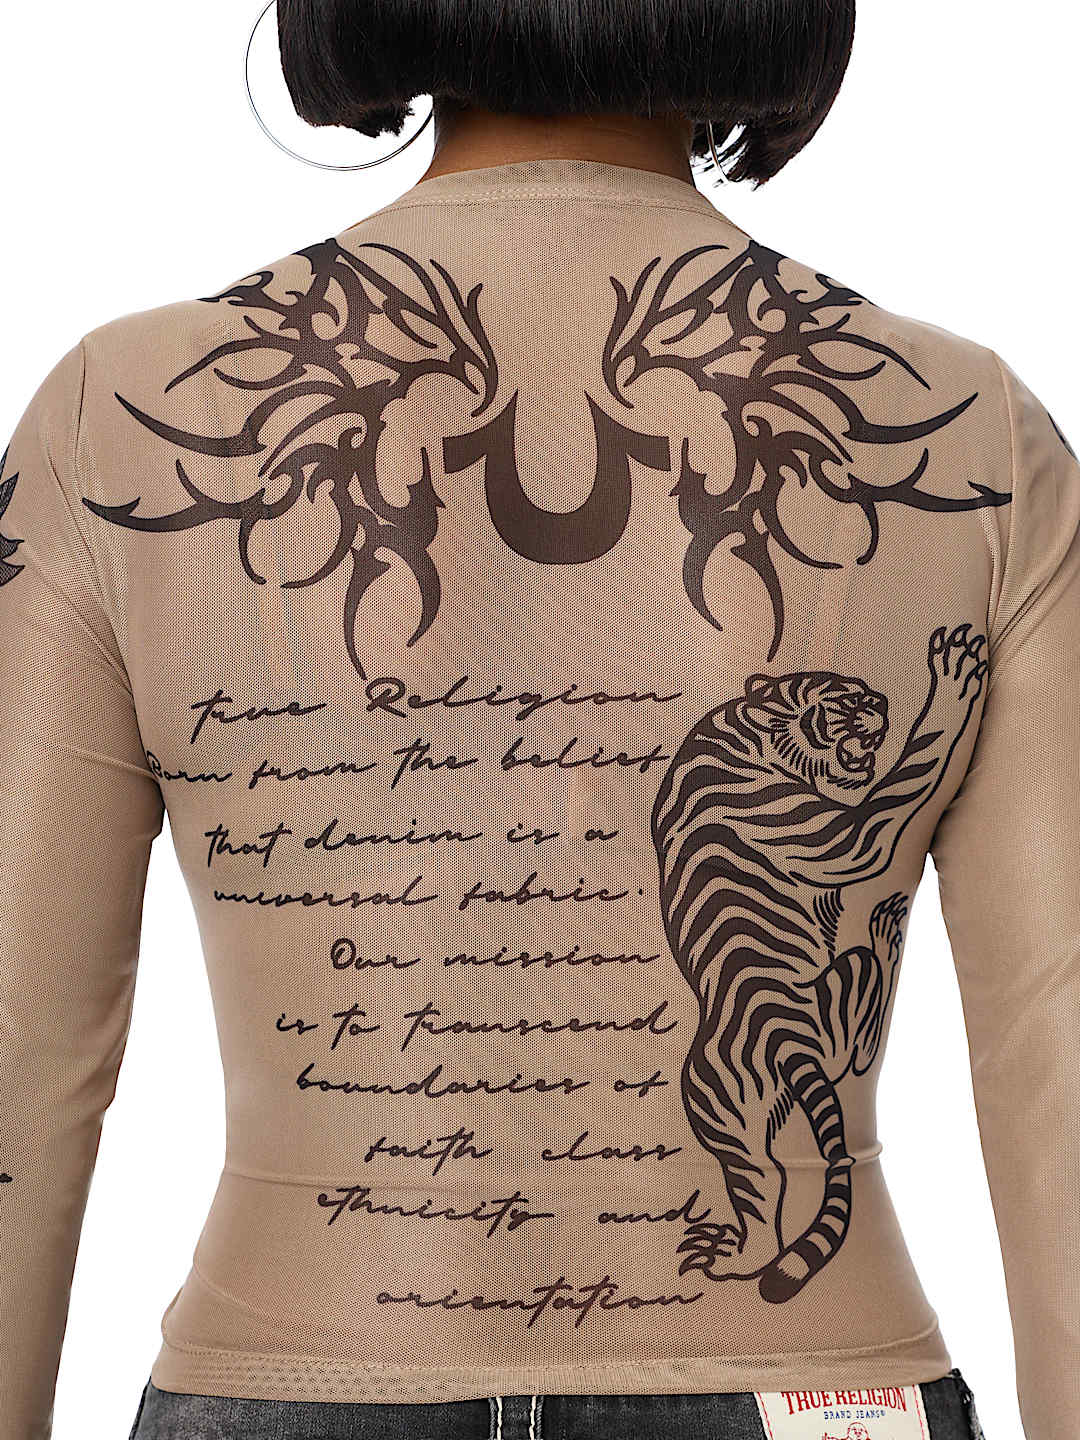 True Religion
Born from the belief
that denim is a
universal fabric.
Our mission
is to transcend
boundaries of
faith class
ethnicity and
orientation
TRUE RELIGION
BRAND JEANS®